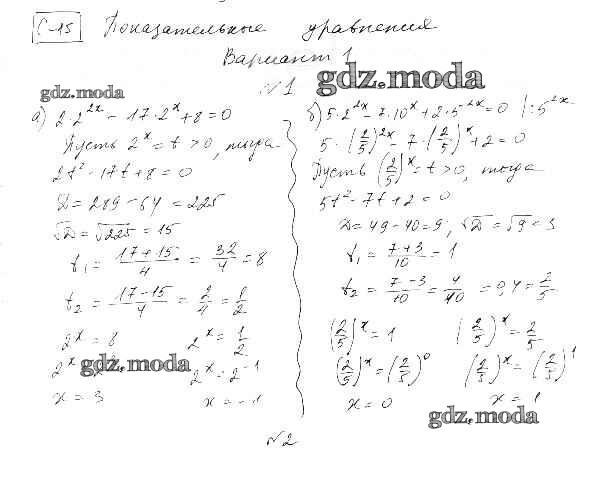 С-15 Показательные уравнения
Вариант 1
gdz.moda
gdz.moda
№1
а) 2·2^{2x} - 17·2^x + 8 = 0
Пусть 2^x = t > 0, тогда
2t² - 17t + 8 = 0
D = 289 - 64 = 225
√D = √225 = 15
t₁ = (17+15)/4 = 32/4 = 8
t₂ = (17-15)/4 = 2/4 = 1/2
2^x = 8 2^x = 1/2
2^x gdz.moda 2^x = 2^{-1}
x = 3 x = -1
б) 5·2^{2x} - 7·10^x + 2·5^{2x} = 0 |:5^{2x}
5·(2/5)^{2x} - 7·(2/5)^x + 2 = 0
Пусть (2/5)^x = t > 0, тогда
5t² - 7t + 2 = 0
D = 49 - 40 = 9; √D = √9 = 3
t₁ = (7+3)/10 = 1
t₂ = (7-3)/10 = 4/10 = 0,4 = 2/5
(2/5)^x = 1 (2/5)^x = 2/5
(2/5)^x = (2/5)^0 (2/5)^x = (2/5)^1
x = 0 x = 1
gdz.moda
№2